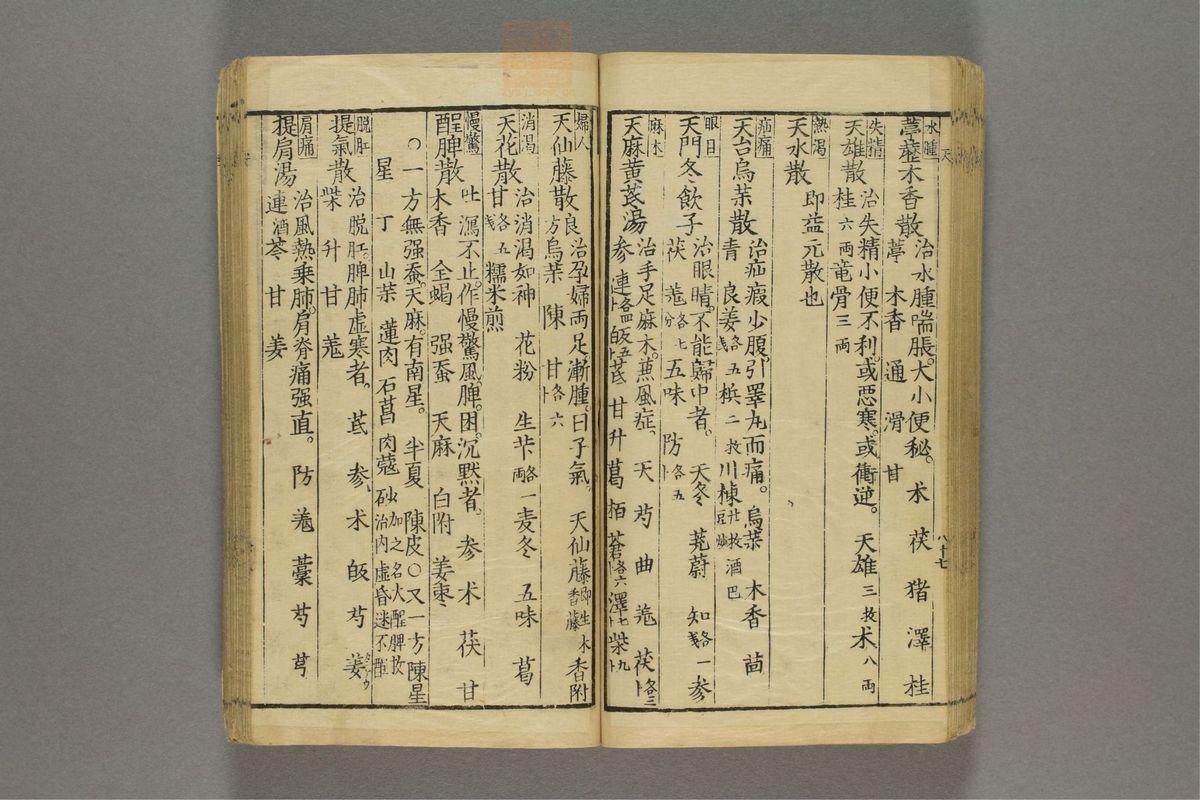 水腫
葶藶木香散
治水腫喘脹。大小便秘。 木 茯 猪 澤 桂
葶 木香 通 滑 甘
失精
天雄散
治失精小便不利。或惡寒。或衝逆。 天雄三枚 术八兩
桂六兩 竜骨三兩
熱渇
天水散
即益元散也
疝痛
天台烏茱散
治疝瘕少腹。引睪丸而痛。 烏茱 木香 茴
青 良姜各五戔 梹二枚 川楝 酒 巴
眼目
天門冬飲子
治眼睛。不能歸中者。 天冬 茺蔚 知各一戔 参
茯 羗各七分 五味 防各五卜
麻木
天麻黄芪湯
治手足麻木。蒹風症、 天 芍 曲 羗 茯各三卜
参 連各四卜 皈五卜 芪 甘 升 葛 栢 蒼各六卜 澤七卜 柴九卜
婦人
天仙藤散良方
治孕婦兩足漸腫。曰子氣。 天仙藤即生木香藤 香附
烏茱 陳 甘各六卜
消渇
天花散
治消渇如神 花粉 生苄各一兩 麦冬 五味 葛
甘各五戔 糯米煎
慢驚
醒脾散
吐瀉不止。作慢驚風。脾。困。沉黙者。 参 术 茯 甘
木香 全蝎 强蚕 天麻 白附 姜棗
○一方無强蚕。天麻。有南星。 半夏 陳皮○又一方陳星
星 丁 山茱 蓮肉 石菖 肉蔻 砂加之名大醒脾散治内虚昏迷不醒
脱肛
提氣散
治脱肛。脾肺虚寒者。 芪 参、 术 皈 芍 姜
柴 升 甘 羗
肩痛
提肩湯
治風熱乗肺。肩脊痛强直。 防 羗 藁 芍 芎
連酒 苓 甘 姜
天
八十七